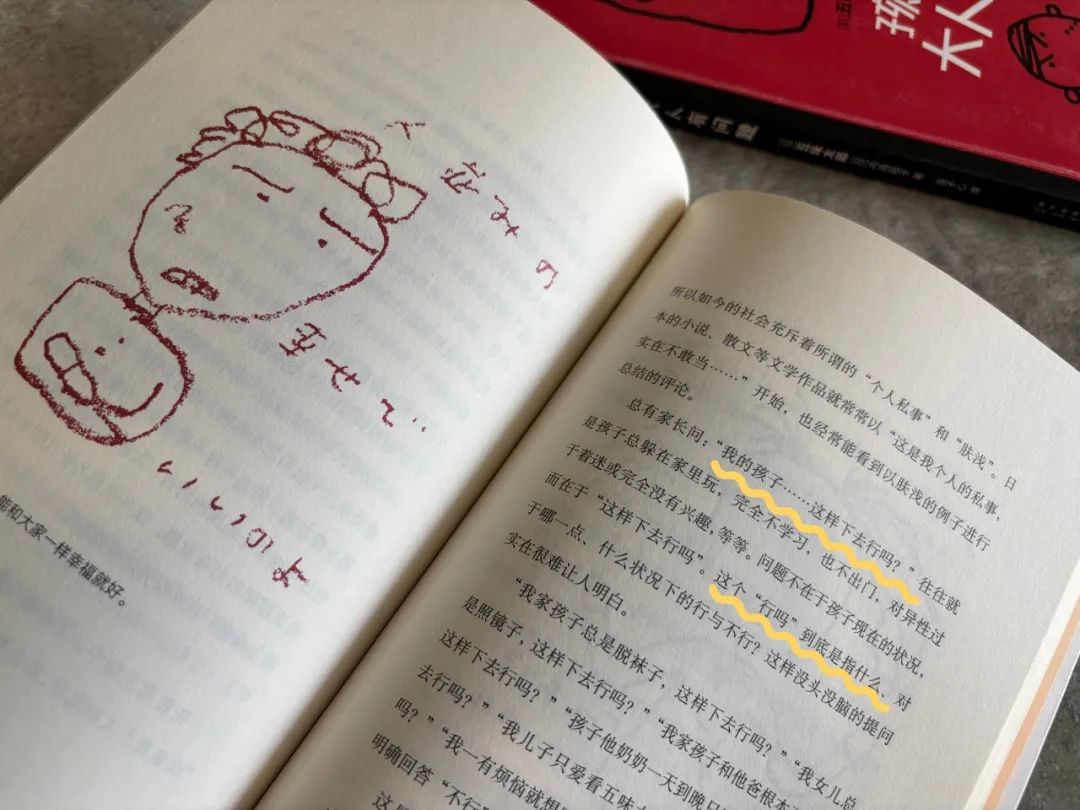 人
が
幸せで
あればいい
能和大家一样幸福就好。
所以如今的社会充斥着所谓的“个人私事”和“肤浅”。日
本的小说、散文等文学作品就常常以“这是我个人的私事，
实在不敢当……”开始，也经常能看到以肤浅的例子进行
总结的评论。
总有家长问：“我的孩子……这样下去行吗？”往往就
是孩子总躲在家里玩，完全不学习，也不出门，对异性过
于着迷或完全没有兴趣，等等。问题不在于孩子现在的状况，
而在于“这样下去行吗”。这个“行吗”到底是指什么、对
于哪一点、什么状况下的行与不行？这样没头没脑的提问
实在很难让人明白。
“我家孩子总是脱袜子，这样下去行吗？”“我女儿总
是照镜子，这样下去行吗？”“我家孩子和他爸根本
这样下去行吗？”“孩子他奶奶一天到晚只
去行吗？”“我儿子只爱看五味太
吗？”“我一有烦恼就想
明确回答“不行
这是
孩
大人
人有问题